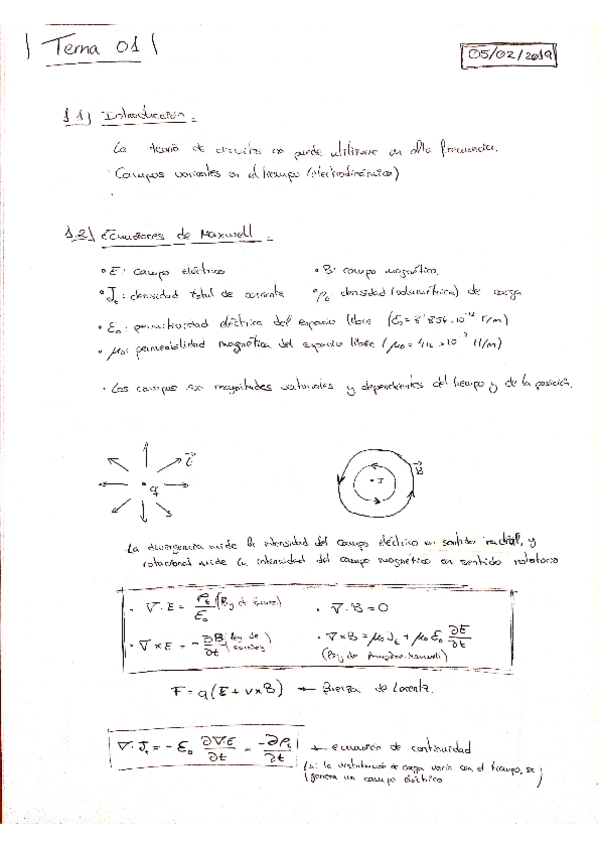 Tema 01
05/02/2019
1.1) Introducción.
La teoría de circuitos no puede utilizarse en alta frecuencia.
Campos variantes en el tiempo (electrodinámico)
1.2) Ecuaciones de Maxwell.
• E: campo eléctrico • B: campo magnético.
• J_t: densidad total de corriente • ρ_t: densidad (volumétrica) de carga
• ε₀: permitividad eléctrica del espacio libre (ε₀ = 8'854·10⁻¹² F/m)
• μ₀: permeabilidad magnética del espacio libre (μ₀ = 4π·10⁻⁷ H/m)
• Los campos son magnitudes vectoriales y dependientes del tiempo y de la posición.
E
q
B
J
La divergencia mide la intensidad del campo eléctrico en sentido radial, y
rotacional mide la intensidad del campo magnético en sentido rotatorio
• ∇·E = ρ_t/ε₀ (Ley de Gauss) • ∇·B = 0
• ∇×E = -∂B/∂t (Ley de Faraday) • ∇×B = μ₀J_t + μ₀ε₀ ∂E/∂t
(Ley de Ampère-Maxwell)
F = q(E + v×B) ← Fuerza de Lorentz.
∇·J_t = -ε₀ ∂∇·E/∂t = -∂ρ_t/∂t ← Ecuación de continuidad
(si la distribución de carga varía con el tiempo, se
genera un campo eléctrico)